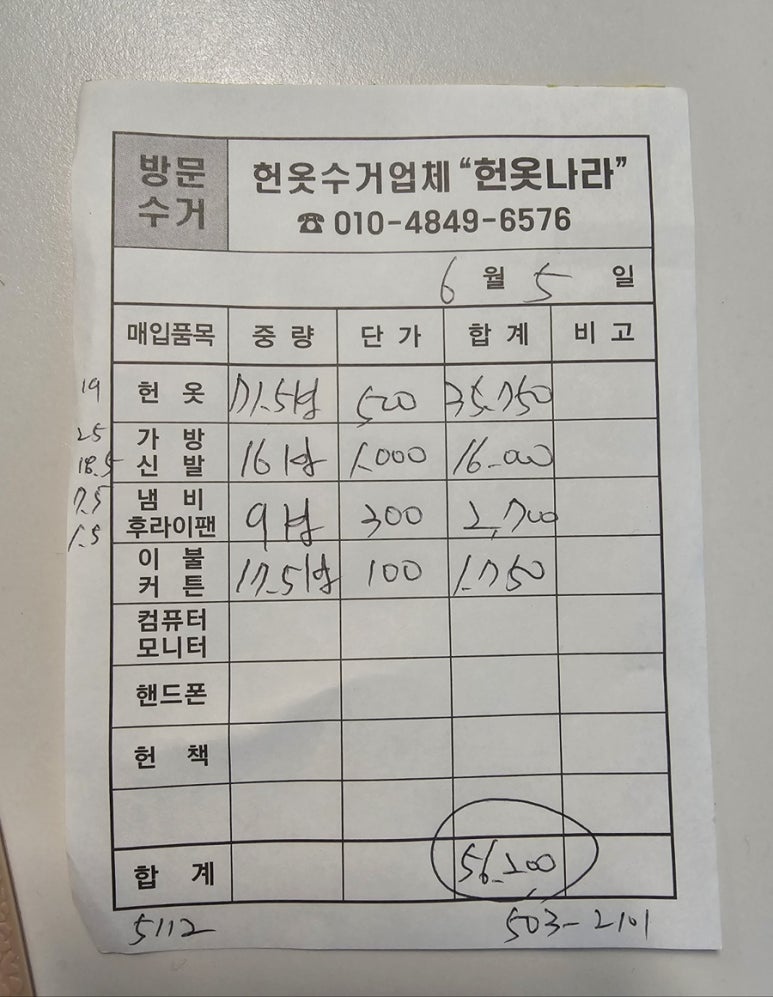 방문
수거
헌옷수거업체 “헌옷나라”
☎ 010-4849-6576
6 월 5 일
매입품목 중 량 단 가 합 계 비 고
19
헌 옷 71.5 500 35.750
25
18.5
가 방
신 발 16 1.000 16.000
7.5
1.5
냄 비
후라이팬 9 300 2,700
이 불
커 튼 17.5 100 1.750
컴퓨터
모니터
핸드폰
헌 책
합 계 56.200
5112 503-2101